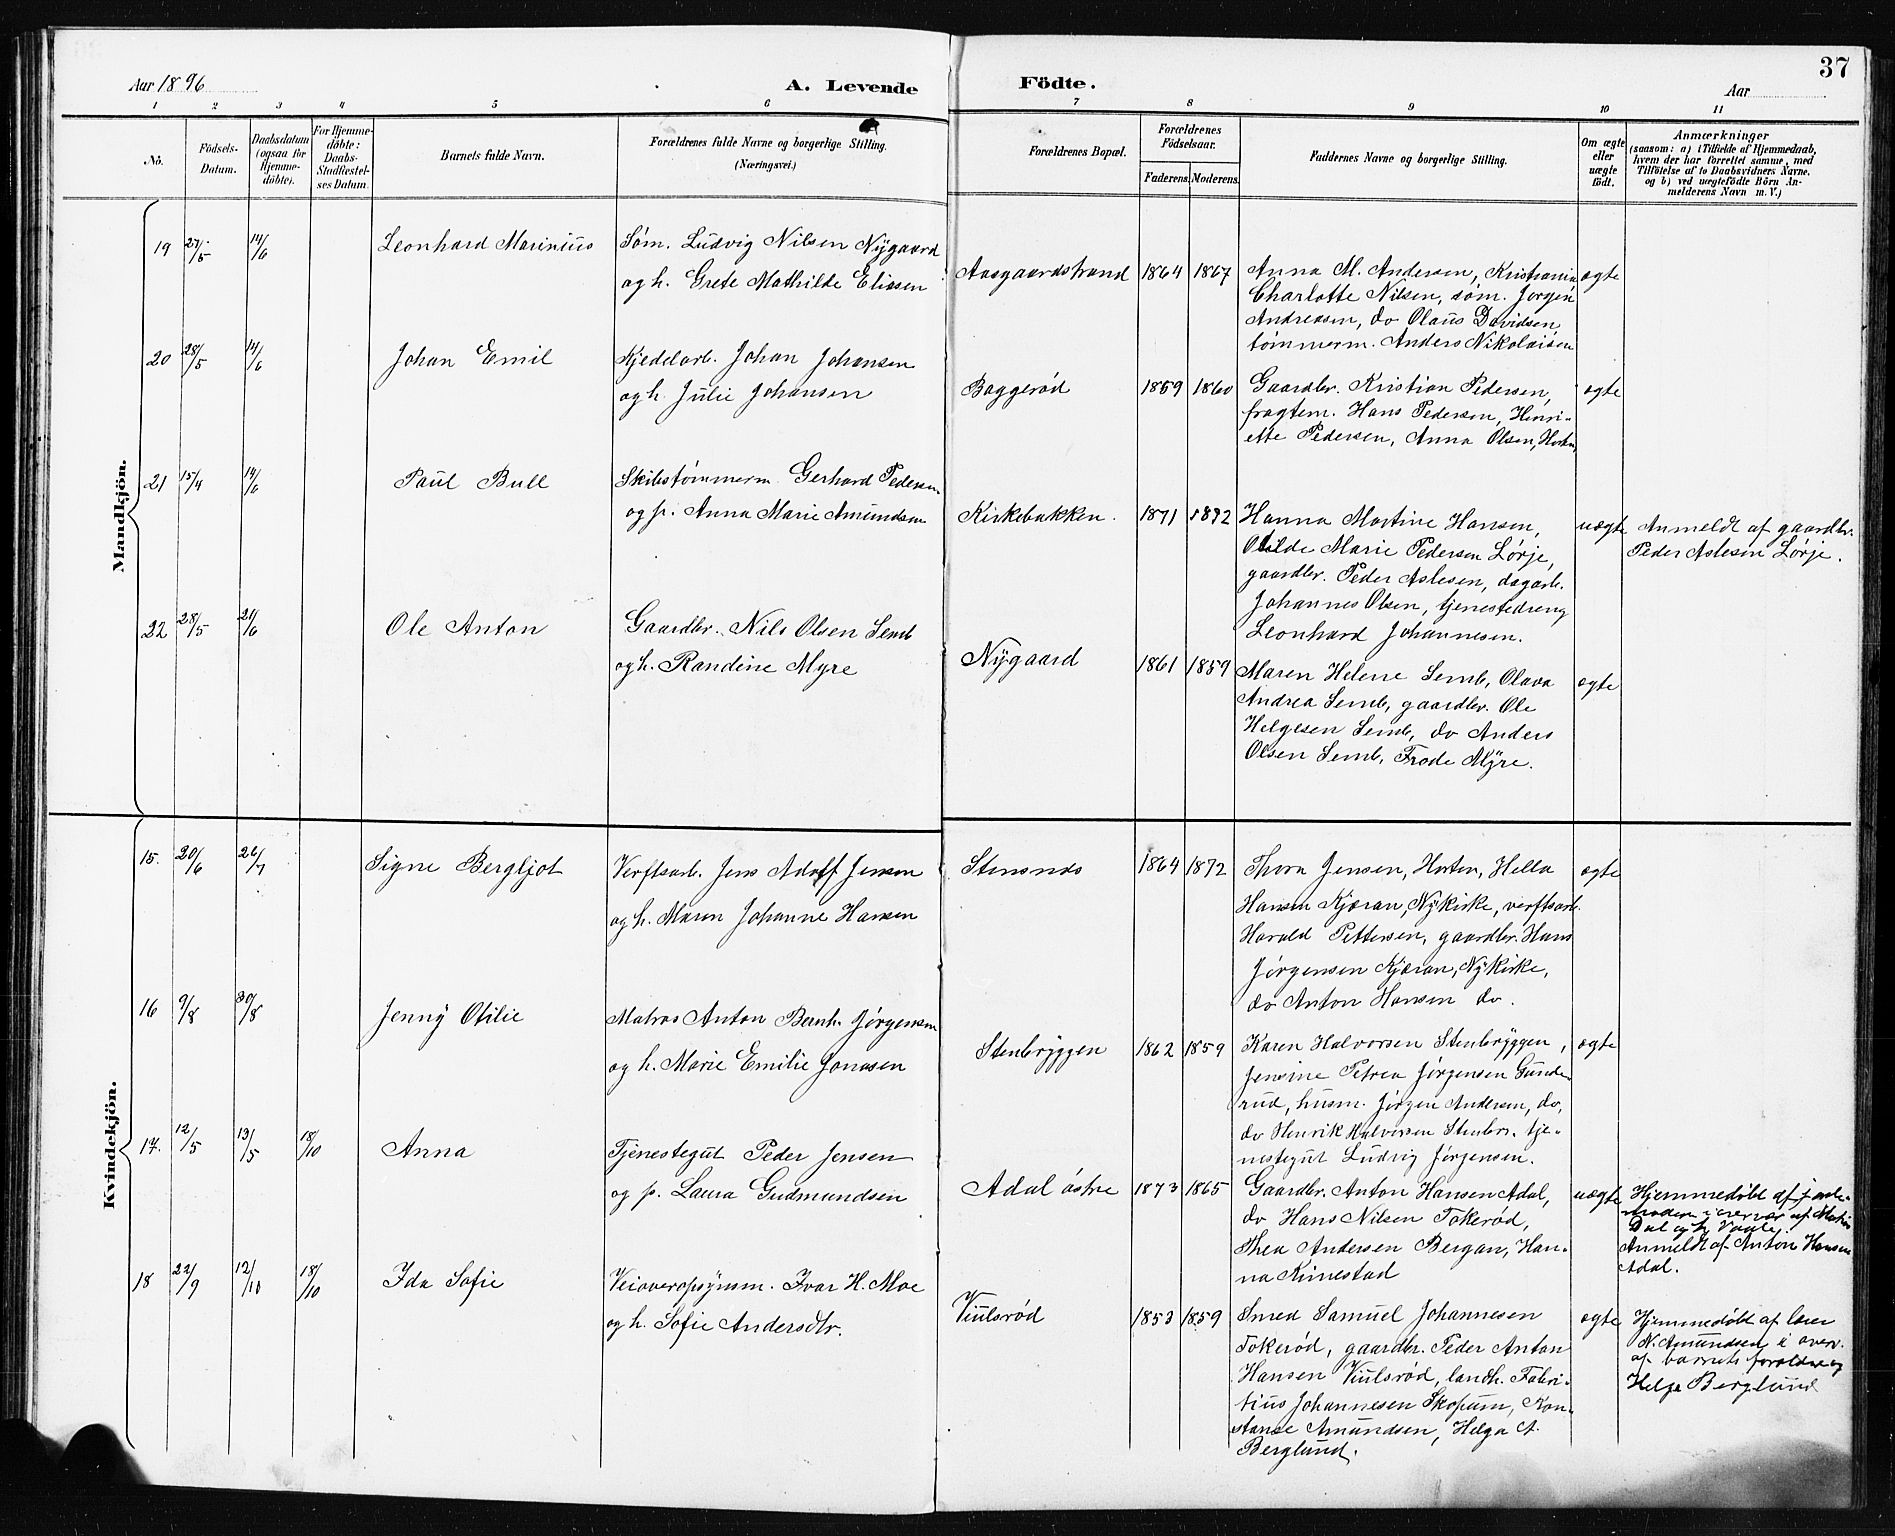 37
Aar 1896
A. Levende
Födte.
Aar
1 2 3 4 5 6 7 8 9 10 11
No.
Födsels-
Datum.
Daabsdatum
(ogsaa for
Hjemme-
döbte).
For Hjemme-
döbte:
Daabs-
Stadfæstel-
ses Datum.
Barnets fulde Navn.
Forældrenes fulde Navne og borgerlige Stilling.
(Næringsvei.)
Forældrenes Bopæl.
Forældrenes
Födselsaar.
Faderens. Moderens.
Faddernes Navne og borgerlige Stilling.
Om ægte
eller
uægte
födt.
Anmærkninger
(saasom: a) i Tilfælde af Hjemmedaab,
hvem der har forrettet samme, med
Tilföielse af to Daabsvidners Navne,
og b) ved uægtefödte Börn An-
melderens Navn m. V.)
Mandkjön.
19 27/5 14/6 Leonhard Marinius
Søm. Ludvig Nilsen Nygaard
og h. Grete Mathilde Eliasen
Aasgaardstrand 1864 1867
Anna M. Andersen, Kristiania
Charlotte Nilsen, søm. Jørgen
Andreasen, do Olaus Davidsen,
tømmerm. Anders Nikolaisen
ægte
20 28/5 14/6 Johan Emil
Kjeddarb. Johan Johansen
og h. Julie Johansen
Baggerød 1859 1860
Gaardbr. Kristian Pedersen,
fragtem. Hans Pedersen, Henri-
ette Pedersen, Anna Olsen, Horten
ægte
21 15/4 14/6 Paul Bull
Skibstømmerm. Gerhard Pedersen
og p. Anna Marie Amundsen
Kirkebakken. 1871 1872
Hanna Martine Hansen,
Otilde Marie Pedersen Lørje,
gaardbr. Peder Aslesen, dagarb.
Johannes Olsen, tjenestedreng
Leonhard Johannesen.
uægte
Anmeldt af gaardbr.
Peder Aslesen Lørje.
22 28/5 21/6 Ole Anton
Gaardbr. Nils Olsen Semb
og h. Randine Myre
Nygaard 1861 1859
Maren Helene Semb, Olava
Andrea Semb, gaardbr. Ole
Helgesen Semb, do Anders
Olsen Semb, Frode Myre.
ægte
Kvindekjön.
15. 20/6 26/7 Signe Bergljot
Verftsarb. Jens Adolf Jensen
og h. Maren Johanne Hansen
Stensnes 1864 1872
Thora Jensen, Horten, Hella
Hansen Kjæran, Nykirke, verftsarb.
Harald Pettersen, gaardbr. Hans
Jørgensen Kjæran, Nykirke,
do Anton Hansen do.
ægte
16 9/8 30/8 Jenny Otilie
Matros Anton Bernh. Jørgensen
og h. Marie Emilie Jonasen
Stenbryggen 1862 1859
Karen Halvorsen Stenbryggen,
Jensine Petrea Jørgensen Gunde-
rud, husm. Jørgen Andersen, do,
do Henrik Halvorsen Stenbr. tje-
nestegut Ludvig Jørgensen.
ægte
17. 12/5 13/5 18/10 Anna
Tjenestegut Peder Jensen
og p. Laura Gudmundsen
Adal østre 1873 1865
Gaardbr. Anton Hansen Adal,
do Hans Nilsen Tokerød,
Thea Andersen Bergan, Han-
na Kimestad
uægte
Hjemmedøbt af jorde-
moderen i overvær af
Dal og
Anmeldt af Anton Hansen
Adal.
18 22/9 12/10 18/10 Ida Sofie
Veioveropsynsm. Ivar H. Moe
og h. Sofie Andersdtr.
Viulsrød 1853 1859
Smed Samuel Johannesen
Tokerød, gaardbr. Peder Anton
Hansen Viulsrød, landh. Fabri-
tius Johannesen Skopum, Kon-
stanse Amundsen, Helga A.
Berglund.
ægte
Hjemmedøbt af lærer
N. Amundsen i overv.
af barnets forældre og
Helga Berglund